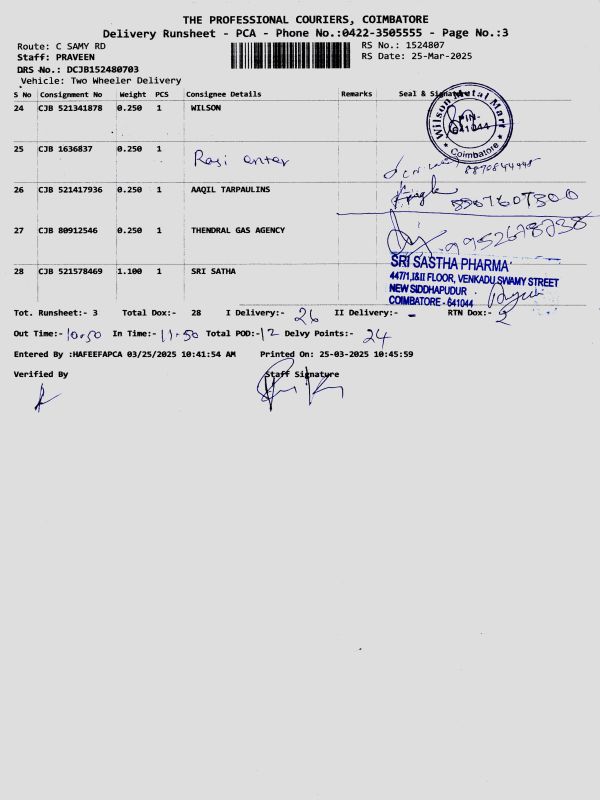 THE PROFESSIONAL COURIERS, COIMBATORE
Delivery Runsheet - PCA - Phone No.:0422-3505555 - Page No.:3
Route: C SAMY RD RS No.: 1524807
Staff: PRAVEEN RS Date: 25-Mar-2025
DRS No.: DCJB152480703
Vehicle: Two Wheeler Delivery
S No Consignment No Weight PCS Consignee Details Remarks Seal & Signature
24 CJB 521341878 0.250 1 WILSON
Wilson Metal Mart
PIN-
641044
* Coimbatore *
25 CJB 1636837 0.250 1
Rasi enter
8870844448
26 CJB 521417936 0.250 1 AAQIL TARPAULINS
27 CJB 80912546 0.250 1 THENDRAL GAS AGENCY
9952678738
28 CJB 521578469 1.100 1 SRI SATHA
SRI SASTHA PHARMA
447/1, I&II FLOOR, VENKADU SWAMY STREET
NEW SIDDHAPUDUR
COIMBATORE - 641044
Tot. Runsheet:- 3 Total Dox:- 28 I Delivery:- 26 II Delivery:- - RTN Dox:- 2
Out Time:- 10.50 In Time:- 11.50 Total POD:- 12 Delvy Points:- 24
Entered By :HAFEEFAPCA 03/25/2025 10:41:54 AM Printed On: 25-03-2025 10:45:59
Verified By Staff Signature